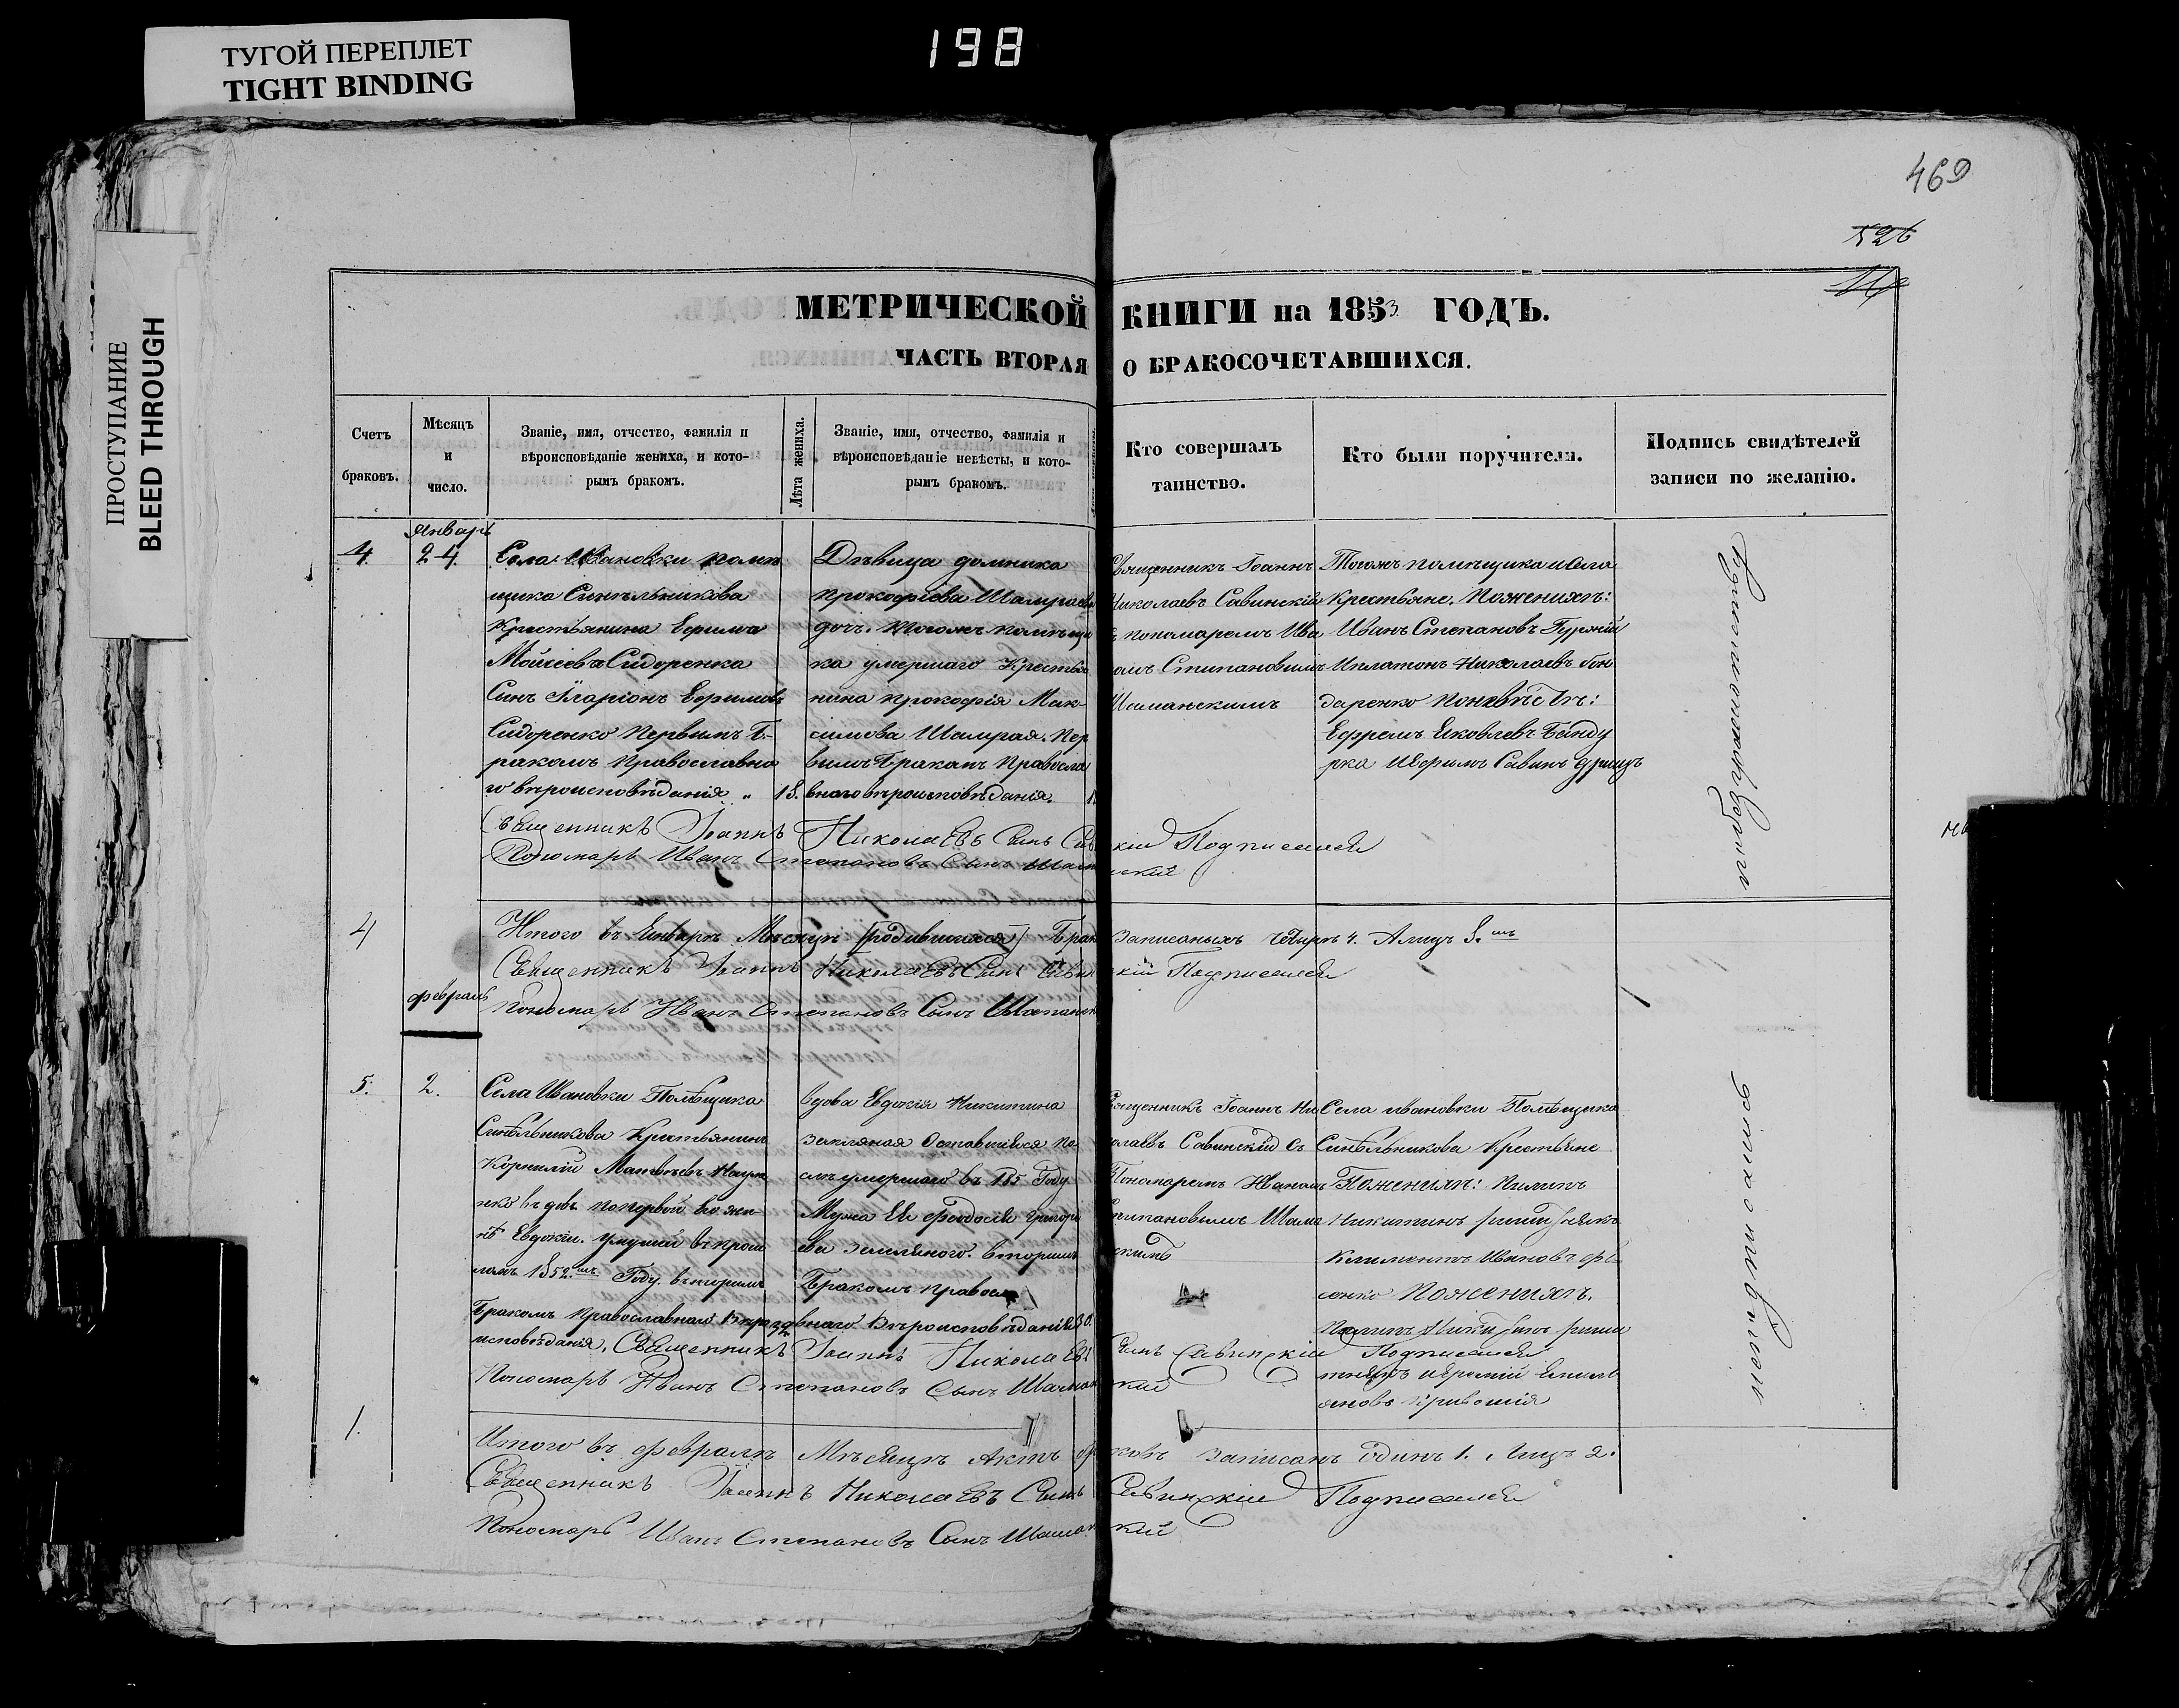 ТУГОЙ ПЕРЕПЛЕТ
TIGHT BINDING
198
ПРОСТУПАНИЕ
BLEED THROUGH
469
526
МЕТРИЧЕСКОЙ КНИГИ на 1853 ГОДЪ.
ЧАСТЬ ВТОРАЯ О БРАКОСОЧЕТАВШИХСЯ.
Счетъ
браковъ.
Мѣсяцъ
и
число.
Званіе, имя, отчество, фамилія и
вѣроисповѣданіе жениха, и кото-
рымъ бракомъ.
Лѣта жениха.
Званіе, имя, отчество, фамилія и
вѣроисповѣданіе невѣсты, и кото-
рымъ бракомъ.
Кто совершалъ
таинство.
Кто были поручители.
Подпись свидѣтелей
записи по желанію.
Январь
4.
24.
Села Ивановки помѣ
щика Синельникова
Крестьянина Ефима
Мойсеева Сидоренка
Синъ Іларіонъ Ефимовъ
Сидоренко Первымъ Б-
ракомъ православно
го вѣроисповѣданія
18.
Дѣвица домника
Прокофіева Шамраева
дочь. тогожъ помѣщи
ка умершаго Крестья
нина Прокофія Мак-
симова Шамрая. Пер
вимъ Бракомъ Правосла
внаго вѣроисповѣданія.
Священникъ Іоаннъ
Николаевъ Савинскій
пономаремъ Ива
омъ Стипановимъ
Шаманскимъ
Тогожъ помѣщика и села
Крестьяне. Поженихѣ:
Иванъ Степановъ Гуржій
Иплатонъ Николаевъ бон
даренко Поневѣстѣ:
Ефремъ Яковлевъ Банду
рка Иефимъ Савинъ
Священникъ Іоаннъ Николаевъ Синъ Сав кій Подписался
Пономарь Иванъ Степановъ Сынъ Шам ский
4
Итого въ Январѣ Мѣсяцѣ [родившихся] Брак Записаныхъ четыре 4. А лицъ 8.мъ
Священникъ Іоаннъ Николаевъ Синъ Савин кій Подписался
Пономарь Иванъ Степановъ Сынъ Шаманс
февраль
5.
2.
Села Ивановки Помѣщика
Синѣльникова Крестьянинъ
Корнилій Матвѣевъ Наум
нко вдовъ поперьвой его же-
нѣ Евдокіи. умушей въ прош
ломъ 1852.мъ Году. вторимъ
Бракомъ православнаго Вѣро
исповѣданія.
вдова Евдокія Никитина
Земляная Оставшейся по
слѣ умершаго въ 185 Году
Мужа Ея Феодосія григорі
ева Земляного. вторимъ
Бракомъ правосл
авнаго Вѣроисповѣданія 30.
Священникъ Іоаннъ Ни
олаевъ Савинскій съ
Пономаремъ Иваномъ
Стипановимъ Шама
скимъ
Села ивановки Помѣщика
Синѣльникова Крестьяне
Поженихѣ: Пилипъ
Никитинъ
Климентъ Ивановъ
Поженихѣ.
Пилипъ Никитинъ
Священникъ Іоаннъ Николаевъ Синъ Савинскій Подписался
Пономарь Иванъ Степановъ Сынъ Шаман кій
1.
Итого въ февралѣ Мѣсяцѣ Актъ бр ковъ Записанъ Одинъ 1. Лицъ 2.
Священникъ Іоаннъ Николаевъ Синъ Савинскій Подписался
Пономарь Иванъ Степановъ Сынъ Шаман кій